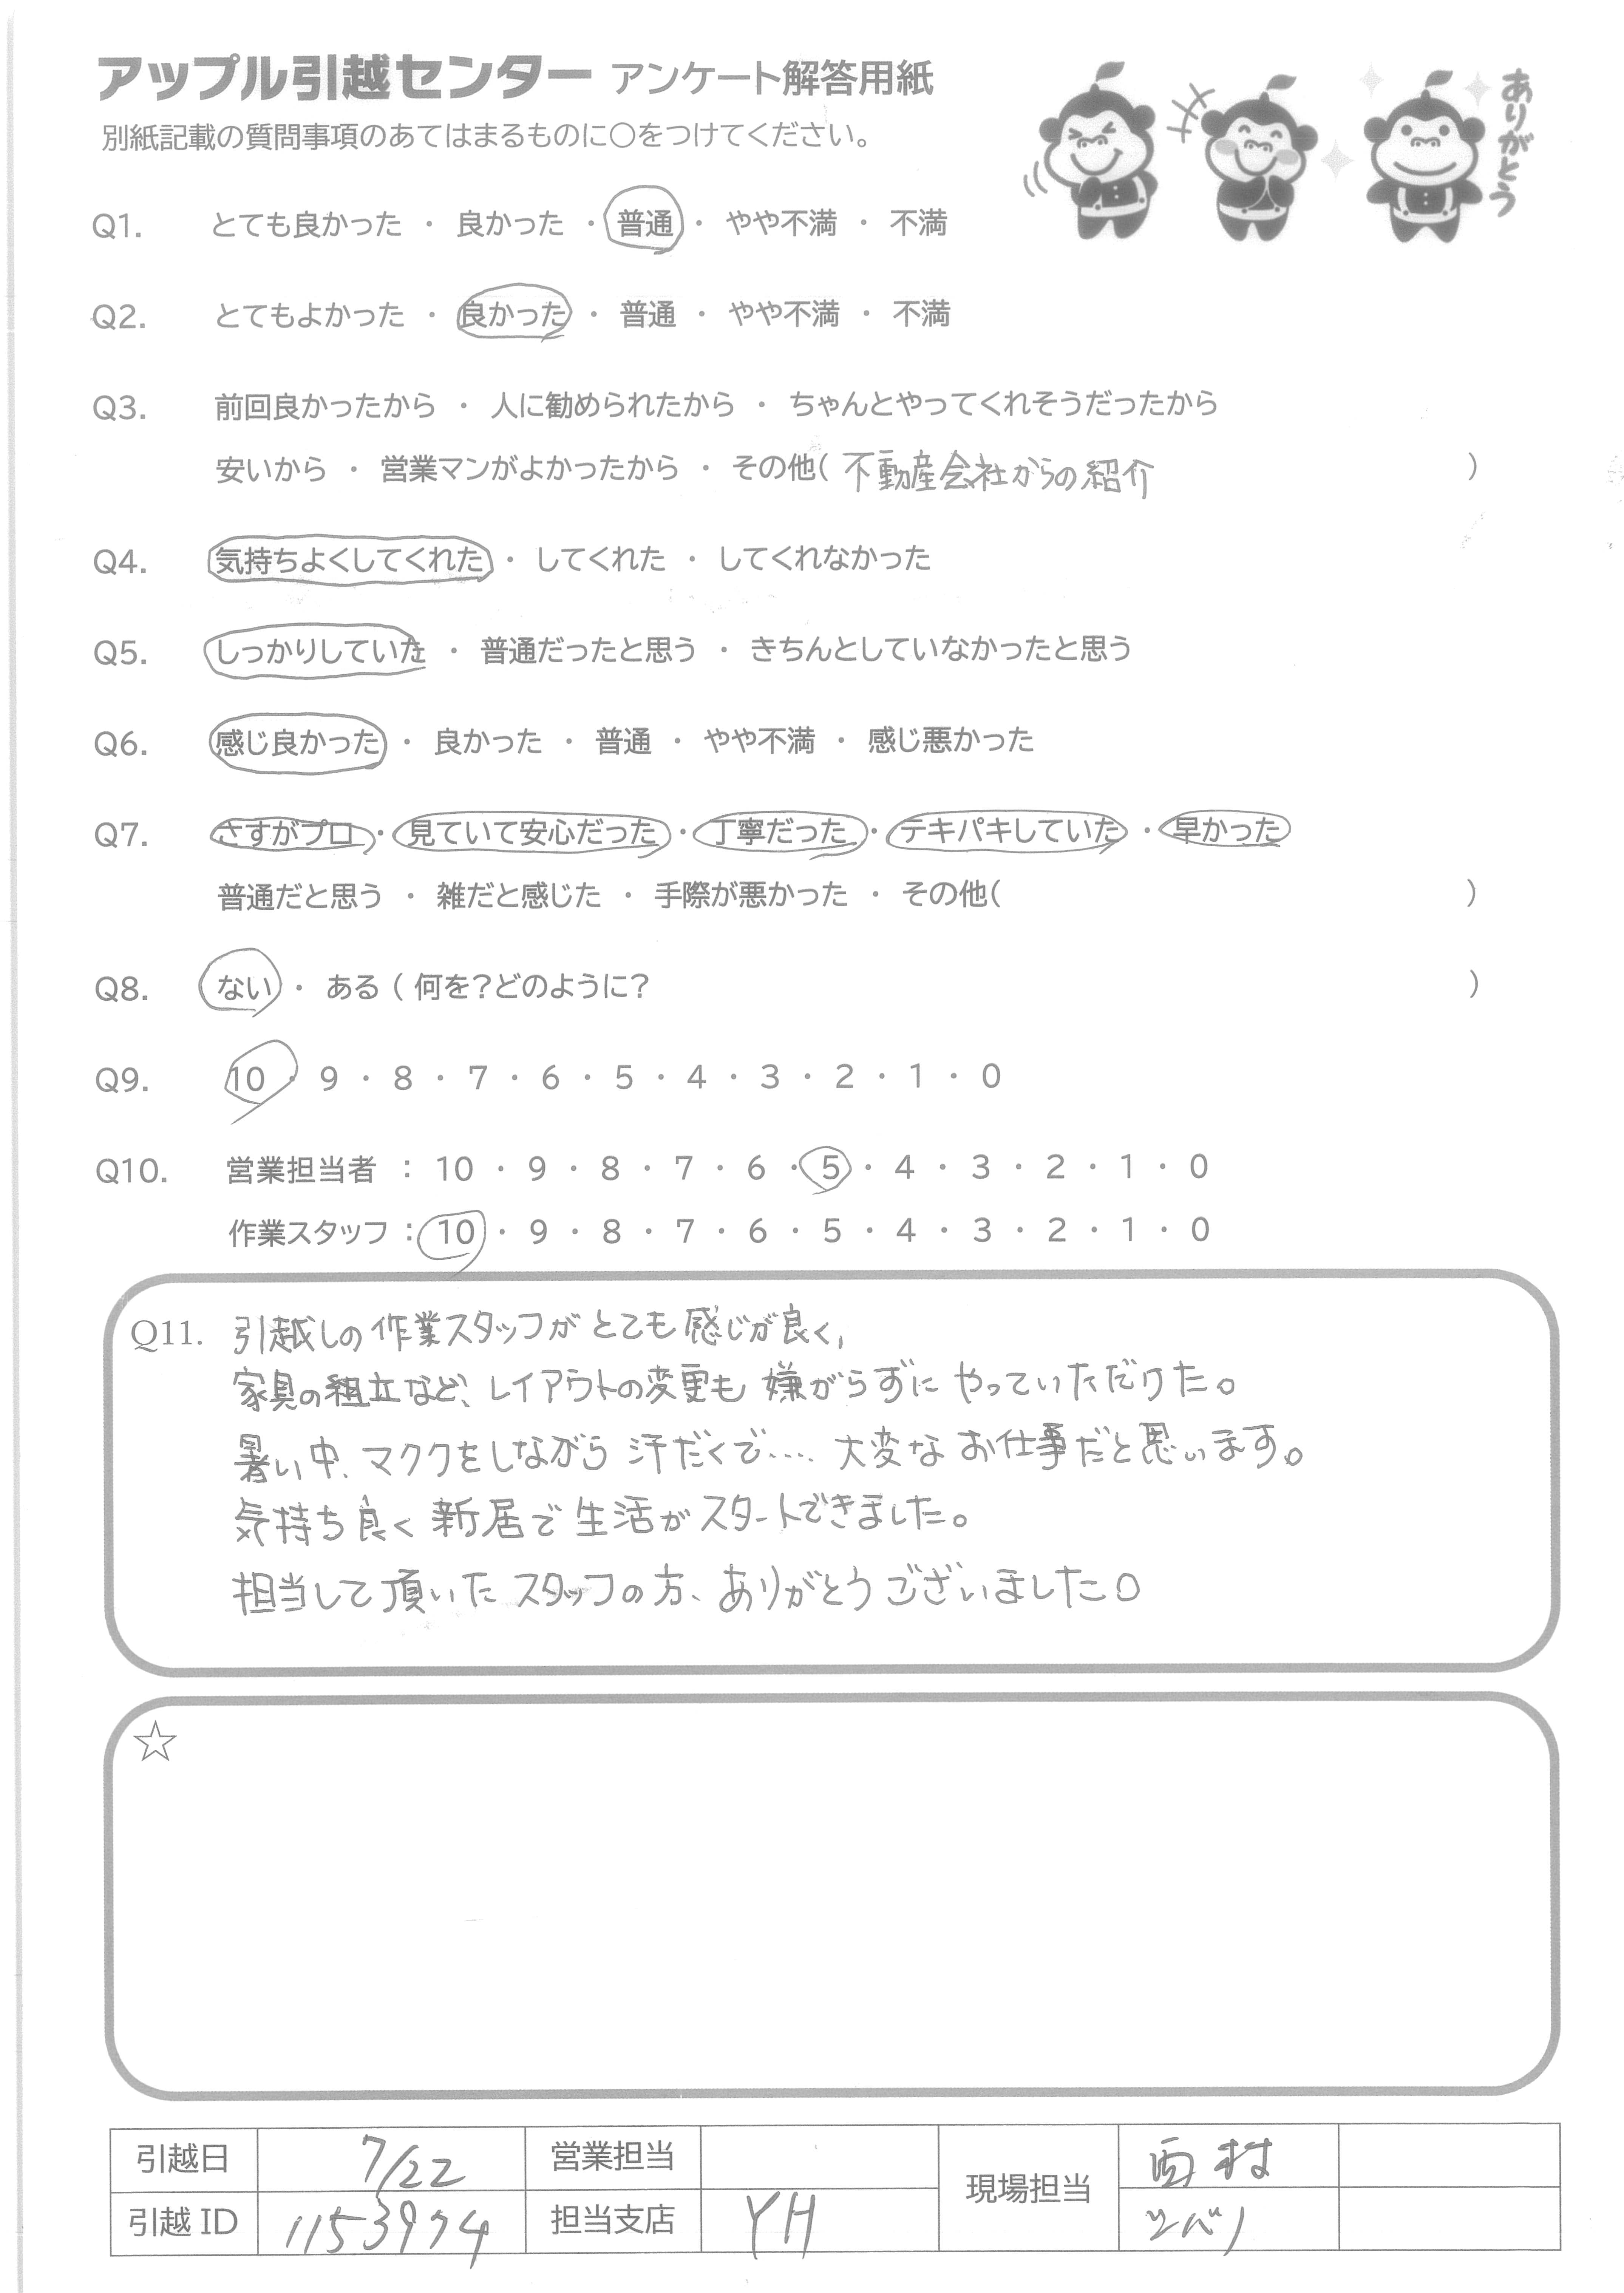 アップル引越センター アンケート解答用紙
別紙記載の質問事項のあてはまるものに〇をつけてください。
ありがとう
Q1. とても良かった ・ 良かった ・ 普通 ・ やや不満 ・ 不満
Q2. とてもよかった ・ 良かった ・ 普通 ・ やや不満 ・ 不満
Q3. 前回良かったから ・ 人に勧められたから ・ ちゃんとやってくれそうだったから
安いから ・ 営業マンがよかったから ・ その他( 不動産会社からの紹介 )
Q4. 気持ちよくしてくれた ・ してくれた ・ してくれなかった
Q5. しっかりしていた ・ 普通だったと思う ・ きちんとしていなかったと思う
Q6. 感じ良かった ・ 良かった ・ 普通 ・ やや不満 ・ 感じ悪かった
Q7. さすがプロ ・ 見ていて安心だった ・ 丁寧だった ・ テキパキしていた ・ 早かった
普通だと思う ・ 雑だと感じた ・ 手際が悪かった ・ その他( )
Q8. ない ・ ある ( 何を?どのように? )
Q9. 10 ・ 9 ・ 8 ・ 7 ・ 6 ・ 5 ・ 4 ・ 3 ・ 2 ・ 1 ・ 0
Q10. 営業担当者 : 10 ・ 9 ・ 8 ・ 7 ・ 6 ・ 5 ・ 4 ・ 3 ・ 2 ・ 1 ・ 0
作業スタッフ : 10 ・ 9 ・ 8 ・ 7 ・ 6 ・ 5 ・ 4 ・ 3 ・ 2 ・ 1 ・ 0
Q11. 引越しの作業スタッフがとても感じが良く、
家具の組立など、レイアウトの変更も嫌がらずにやっていただけた。
暑い中、マククをしながら汗だくで…. 大変なお仕事だと思います。
気持ち良く新居で生活がスタートできました。
担当して頂いたスタッフの方、ありがとうございました〇
☆
引越日 7/22 営業担当 現場担当 西村
引越ID 1153974 担当支店 YH ツバリ